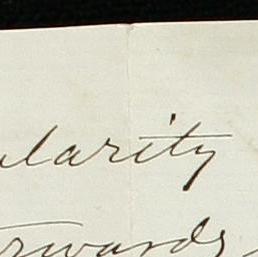 ularity
rwards